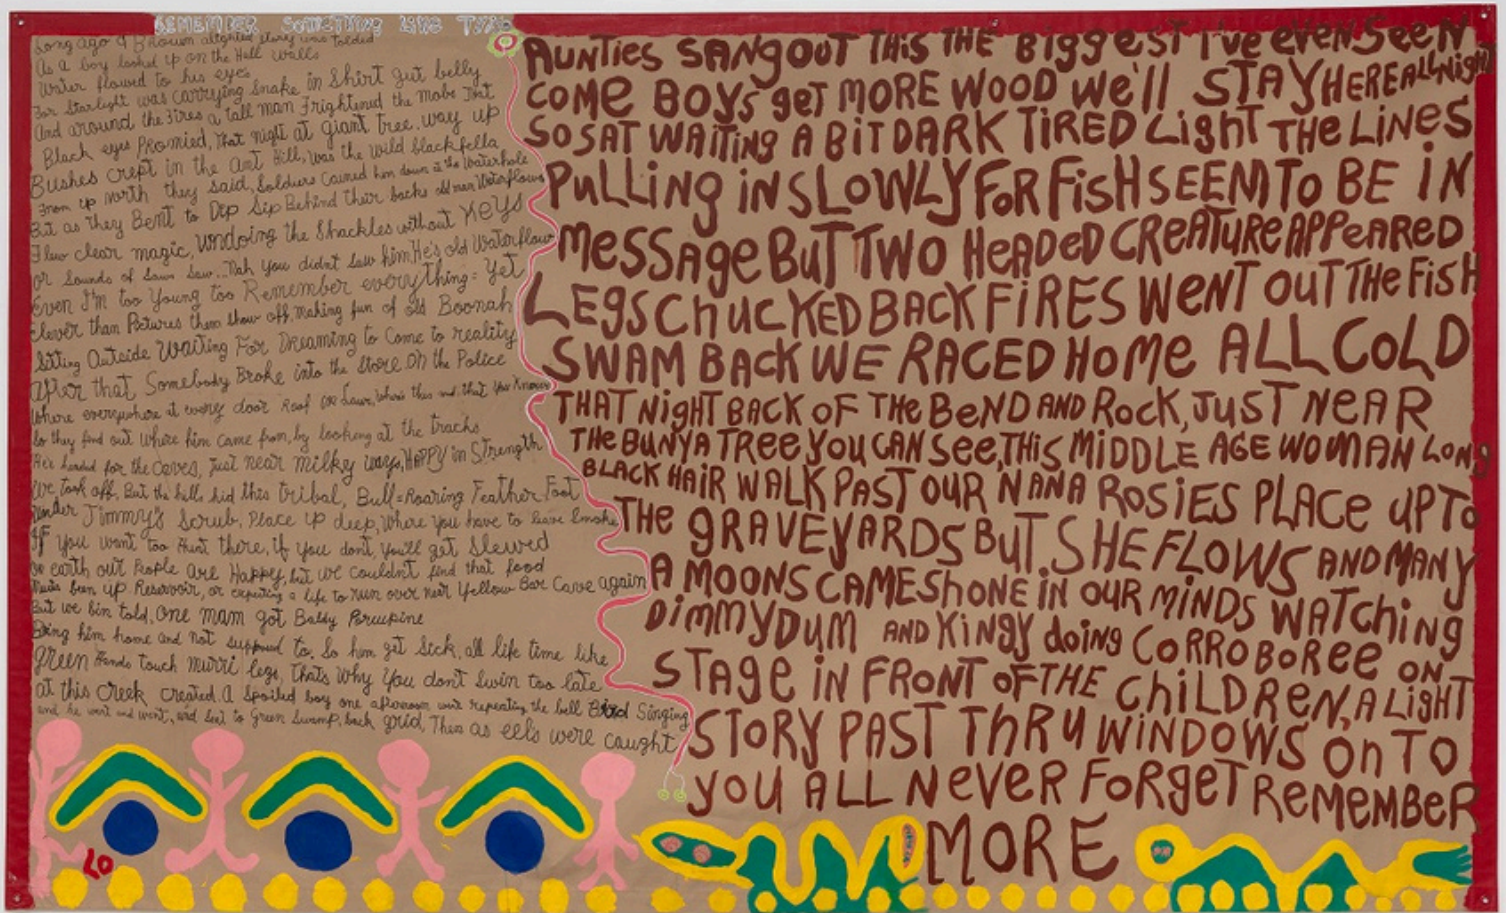 REMEMBER SOMETHING LIKE THIS
Long ago a Brown alighted story was tolded
As a boy looked up on the Hall walls
Water flowed to his eyes
For Starlight was carrying Snake in Shirt gut belly
And around the fires a tall man Frightened the mobs That
Black eyes Promied, That night at giant tree. way up
Bushes crept in the Ant Hill, Was the wild blackfella
From up north they said, Soldiers Cained him down at the Waterhole
But as they Bent to Dip Sip Behind Their backs old man Waterflows
Flew clear magic, undoing the Shackles without Keys
or Sounds of Saws Saw.. Nah you didn't Saw him He's old Waterflow
Even I'm too Young too Remember everything = Yet
Clever than Pictures them Show off, making fun of old Boonah
Sitting Outside Waiting For Dreaming to Come to reality
After that Somebody Broke into the Store Oh the Police
Where everywhere at every door Roof or Luvr, where's this and that You Knows
So they find out Where him came from, by looking at the tracks
He's headed for the caves, Just near milky ways, HAPPY in Strength
We took off, But the hills hid this tribal, Bull=Roaring Feather Foot
Under Jimmy's Scrub, Place up deep, Where you have to leave Smoke
If you want too Hunt there, if you don't, you'll get Slewed
on earth our People are Happy, but we couldn't find that food
been up Reservoir, or expecting a life to run over near Yellow Bar Cave again
But we bin told, One mam got Baldy Porcupine
Bring him home and not supposed to, So him get Sick, all life time like
green Hands touch murri legs, That's Why You don't Swin too late
at this creek created. A Spoiled boy one afternoon went repeating the bell Bird Singing
and he went and went, and Sent to Green Swamp, back grid, Then as eels were caught
AUNTIES SANG OUT THIS THE BiggEST I've EVEN SEEN
COME BOYS get MORE WOOD we'll STAY HERE ALL NighT
SO SAT WAITiNg A BIT DARK TiRED LighT THE LiNES
PULLiNg iN SLOWLY FOR FiSH SEEM TO BE iN
MESSAge BUT TWO HEADED CREATURE APPEARED
LEgS ChUCKED BACK FiRES WENT OUT THE FiSH
SWAM BACK WE RACED HOMe ALL COLD
THAT NighT BACK OF THE BeND AND ROCK, JUST NEAR
THE BUNYA TREE YOU CAN SEE, THiS MiDDLE AGE WOMAN LONg
BLACK HAiR WALK PAST OUR NANA ROSiES PLACe UP To
THE gRAVEYARDS BUT. SHE FLOWS AND MANY
A MOONS CAME SHONE iN OUR MiNDS WATChiNg
DiMMYDUM AND KiNgY doiNg CORROBOREE ON
STAge iN FRONT OF THE ChiLDREN, A LighT
STORY PAST ThRU WiNDOWS ONTO
YOU ALL NEVER FORgET REMEMBER
MORE
LO